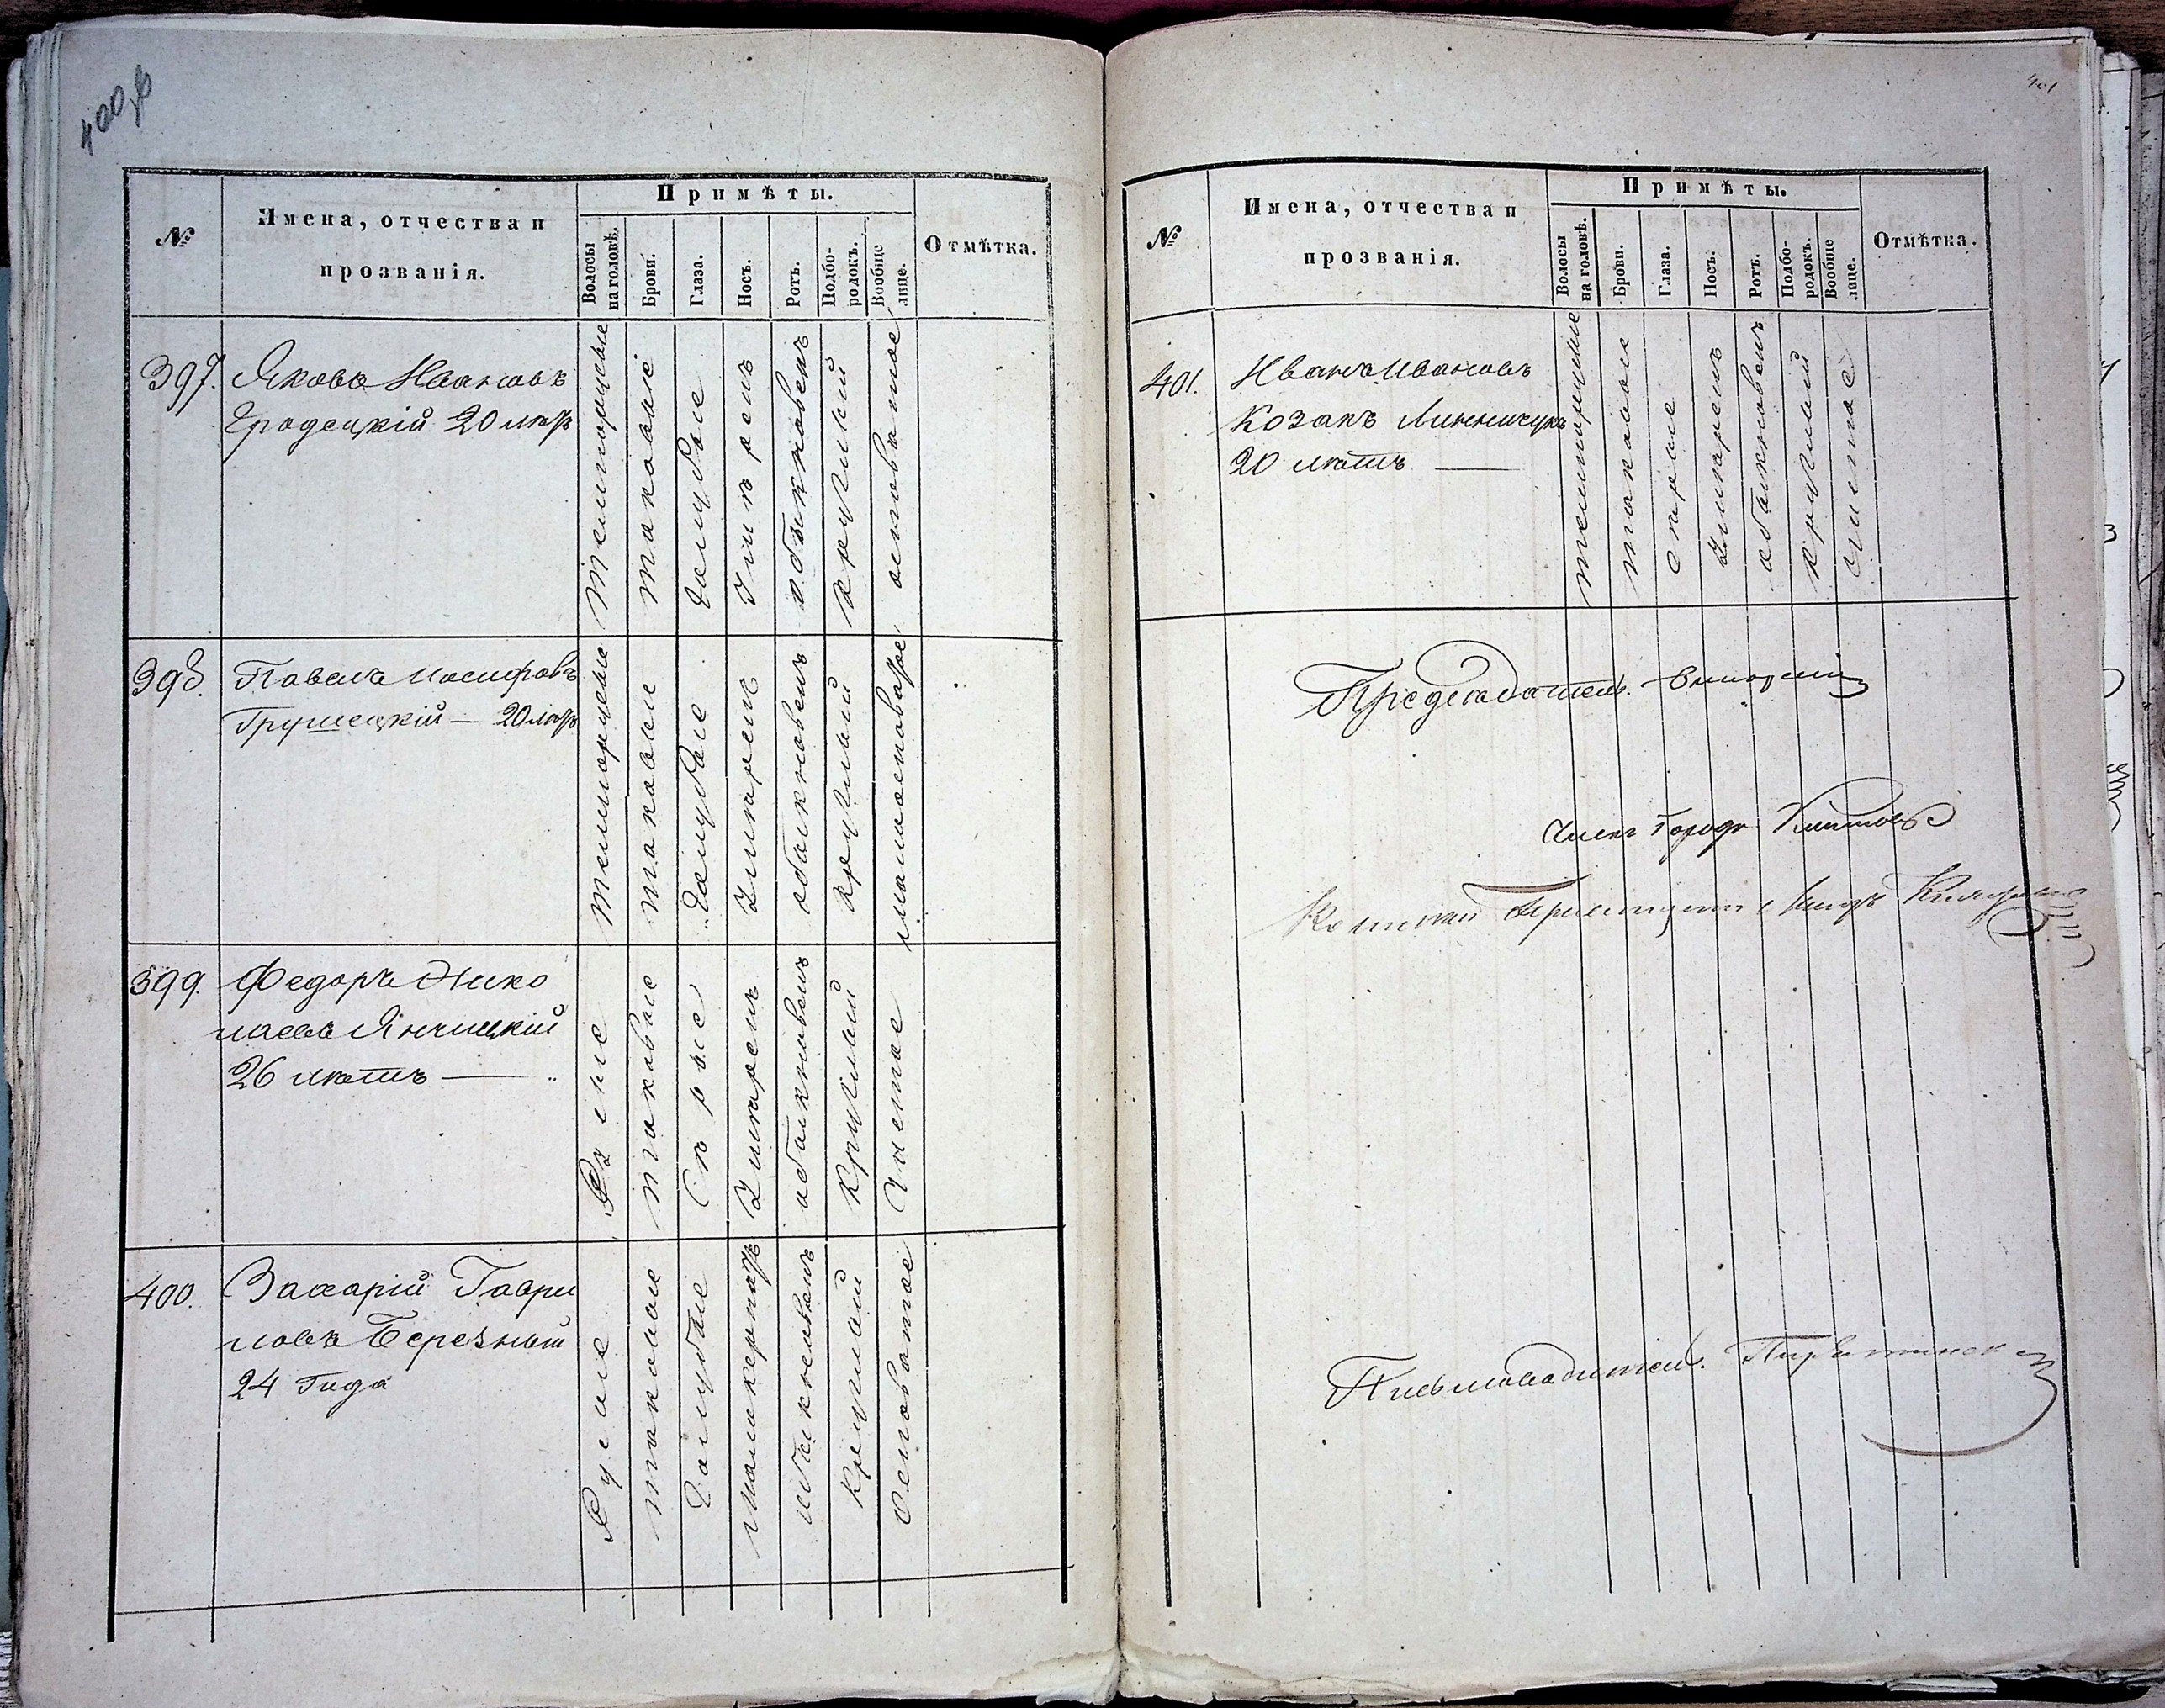 400об
№
Имена, отчества и
прозванія.
Примѣты.
Волосы
на головѣ.
Брови.
Глаза.
Носъ.
Ротъ.
Подбо-
родокъ.
Вообще
лице.
Отмѣтка.
397.
Яковъ Ивановъ
Гродецкій 20 лѣтъ
темнорусые
таковые
голубые
умѣренъ
обыкновенъ
круглый
осповатое
398.
Павелъ Иосифовъ
Грушецкій — 20 лѣтъ
темнорусые
таковые
голубые
умѣренъ
обыкновенъ
круглый
малоосповатое
399.
Федоръ Нико
лаевъ Янчицкій
26 лѣтъ —
Русые
таковые
Сѣрые
умѣренъ
обыкновенъ
круглый
Чистое
400.
Захарій Гаври
ловъ Березный
24 года
Русые
таковые
Голубые
обыкновенъ
круглый
Осповатое
401
№
Имена, отчества и
прозванія.
Примѣты.
Волосы
на головѣ.
Брови.
Глаза.
Носъ.
Ротъ.
Подбо-
родокъ.
Вообще
лице.
Отмѣтка.
401.
Иванъ Ивановъ
Козакъ Линничукъ
20 лѣтъ —
темнорусые
таковые
сѣрые
умѣренъ
обыкновенъ
круглый
чистое
Председатель
Членъ
Письмоводитель